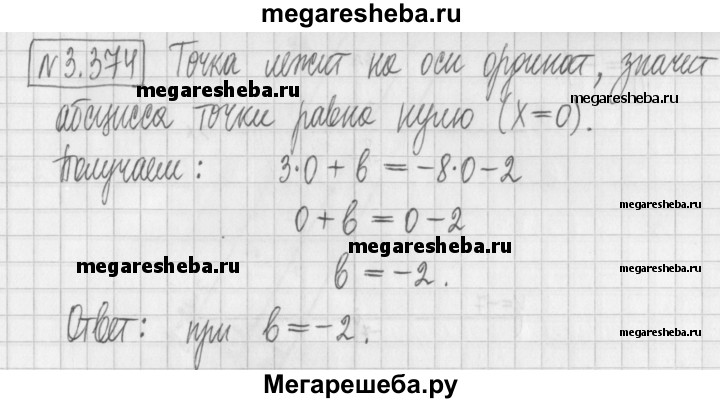 megaresheba.ru
№3.374 Точка лежит на оси ординат, значит
megaresheba.ru
megaresheba.ru
абсцисса точки равна нулю (X=0).
Получаем: 3·0+в=-8·0-2
megaresheba.ru
0+в=0-2
megaresheba.ru
megaresheba.ru
megaresheba.ru
в=-2.
Ответ: при в=-2.
megaresheba.ru
Мегарешеба.ру